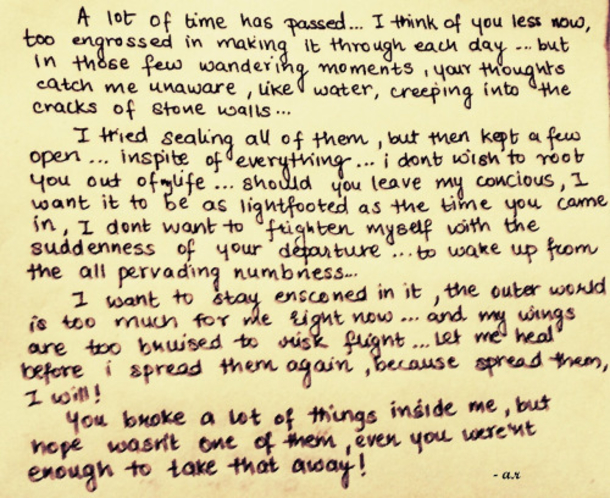 A lot of time has passed... I think of you less now,
too engrossed in making it through each day ... but
in those few wandering moments , your thoughts
catch me unaware , like water, creeping into the
cracks of stone walls ...
I tried sealing all of them , but then kept a few
open ... inspite of everything ... i dont wish to root
you out of my life ... should you leave my concious, I
want it to be as lightfooted as the time you came
in, I dont want to frighten myself with the
suddenness of your departure ... to wake up from
the all pervading numbness...
I want to stay ensconed in it , the outer world
is too much for me right now ... and my wings
are too bruised to risk flight ... let me heal
before i spread them again , because spread them,
I will!
You broke a lot of things inside me, but
hope wasn't one of them , even you weren't
enough to take that away!
- a.r